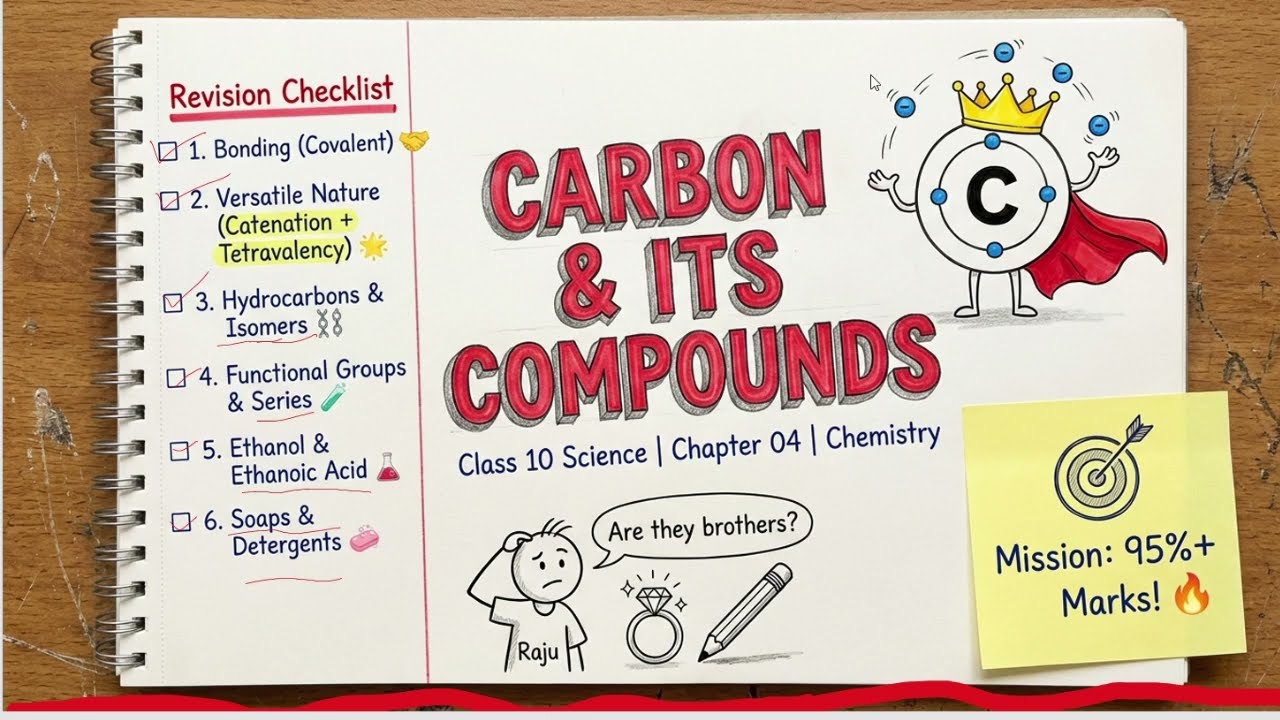 Revision Checklist
1. Bonding (Covalent) 🤝
2. Versatile Nature
(Catenation +
Tetravalency) 🌟
3. Hydrocarbons &
Isomers ⛓️
4. Functional Groups
& Series 🧪
5. Ethanol &
Ethanoic Acid
6. Soaps &
Detergents 🧼
CARBON
& ITS
COMPOUNDS
Class 10 Science | Chapter 04 | Chemistry
C
Are they brothers?
Raju
Mission: 95%+
Marks! 🔥